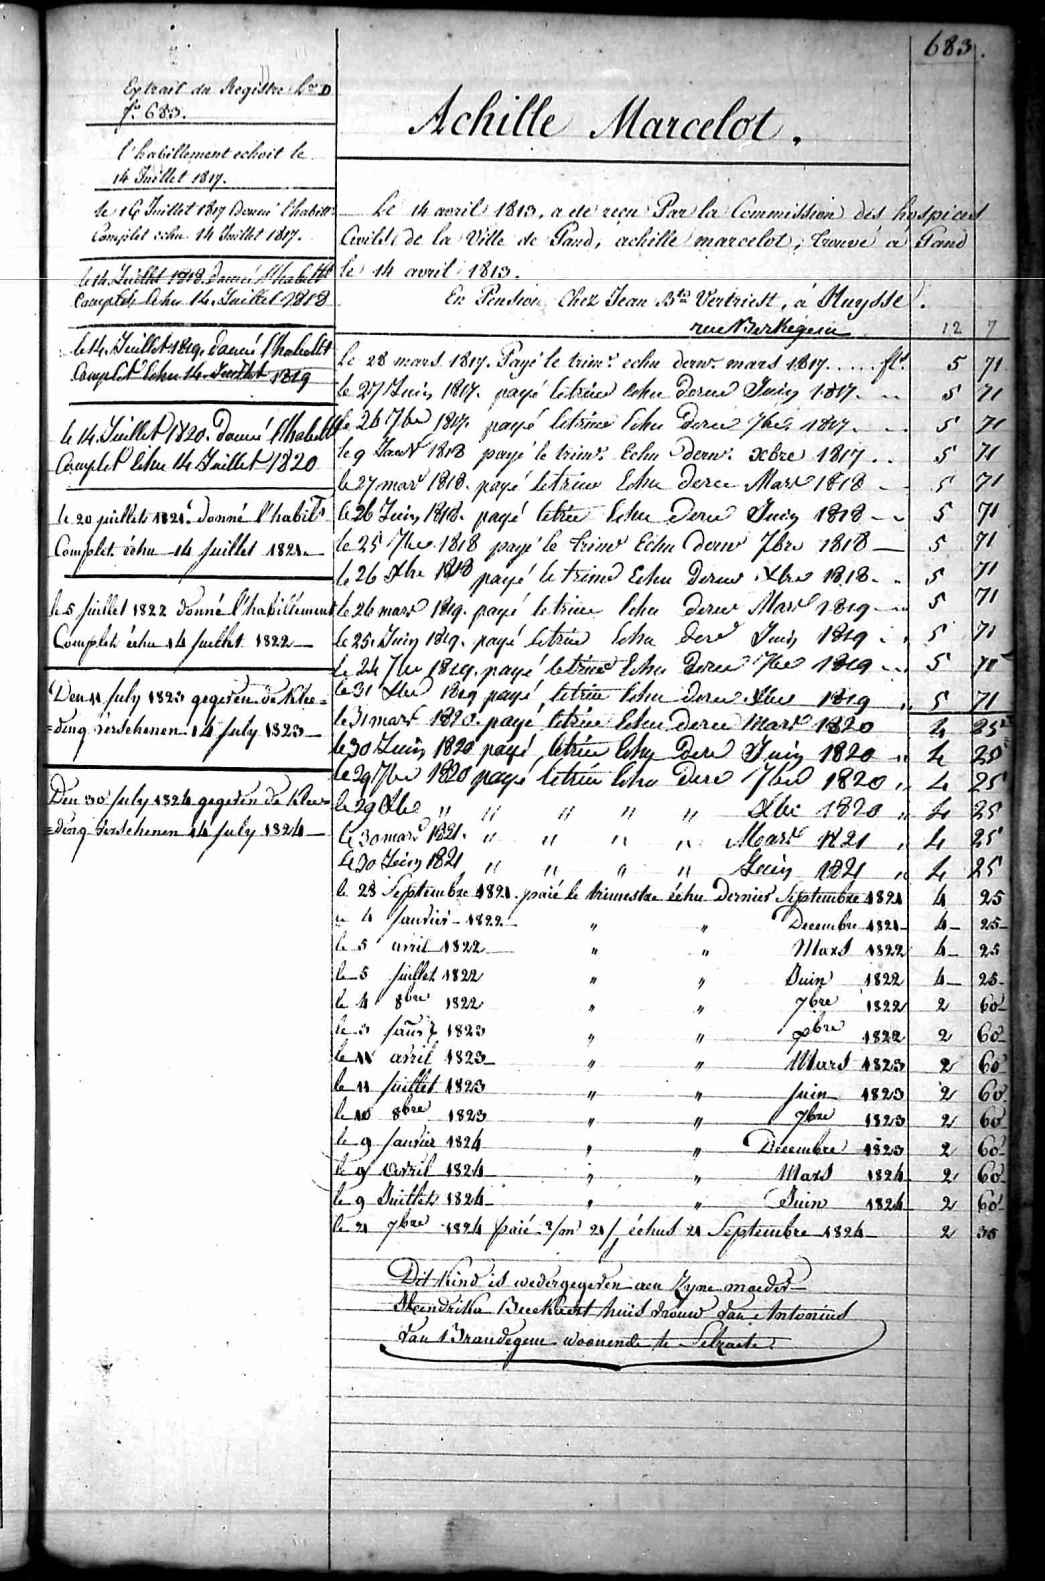 683.
Extrait du Registre Lre D
fo. 683.
l'habillement echoit le
14 Juillet 1817.
le 16 Juillet 1817 Donné l'habitt
Complet echu 14 Juillet 1817.
le 14 Juillet 1818 donné l'habittt
Complet Echu 14 Juillet 1818
le 14 Juillet 1819. donné l'habittt
Complet Echu 14 Juillet 1819
le 14 Juillet 1820. Donné l'habitt
Complet Echu 14 Juillet 1820
le 20 juillet 1821. donné l'habilt
Complet échu 14 juillet 1821.
le 5 juillet 1822 donné l'habillement
Complet échu 14 juillet 1822
Den 11 July 1823 gegeven de Klee=
=ding verschenen 14 July 1823
Den 30 July 1824 gegeven de klee=
=ding verschenen 14 July 1824
Achille Marcelot.
Le 14 avril 1813, a ete reçu Par la Commission des hospices
Civils de la Ville de Gand, achille marcelot, trouvé a Gand
le 14 avril 1813.
En Pension Chez Jean Bte Vertriest, á Huysse.
rue 12 7
le 28 mars 1817. Payé le trimr. echu dernr. mars 1817. .... fls. 5 71
le 27 Juin 1817. payé le trim echu dernr Juin 1817. .. 5 71
le 26 7bre 1817. payé le trim Echu dernr 7bre 1817. . . 5 71
le 9 Janr 1818 payé le trimr. Echu dernr. xbre 1817 . . 5 71
le 27 mars 1818. payé le trim Echu dernr Mars 1818 - . 5 71
le 26 Juin 1818. payé le trim Echu dernr Juin 1818 - - 5 71
le 25 7bre 1818 payé le trimr Echu dernr 7bre 1818 — 5 71
le 26 Xbre 1818 payé le trimr Echu dernr Xbre 1818. . 5 71
le 26 mars 1819. payé le trim Echu dernr Mars 1819 - 5 71
le 25 Juin 1819. payé le trim Echu dernr Juin 1819 . . 5 71
le 24 7bre 1819. payé le trim Echu dernr 7bre 1819 - . 5 71
le 31 Xbre 1819 payé, le trim Echu dernr Xbre 1819 . 5 71
le 31 mars 1820. payé le trim Echu dernr Mars 1820 4 25
le 30 Juin 1820 payé, le trim Echu dernr Juin 1820 " 4 25
le 29 7bre 1820 payé le trim Echu dernr 7bre 1820 " 4 25
le 29 Xbre " " " " " Xbre 1820 " 4 25
le 30 mars 1821. " " " " Mars 1821 " 4 25
le 30 Juin 1821 " " " " Juin 1821 " 4 25
le 28 Septembre 1821. paié le trimestre échu Dernier Septembre 1821 4 25
le 4 janvier 1822 " " Decembre 1821 4 25
le 5 avril 1822 " " Mars 1822 4 25
le 5 juillet 1822 " " Juin 1822 4 25
le 4 8bre 1822 " " 7bre 1822 2 60
le 3 janvr 1823 " " xbre 1822 2 60
le 11 avril 1823 " " Mars 1823 2 60
le 11 juillet 1823 " " juin 1823 2 60
le 10 8bre 1823 " " 7bre 1823 2 60
le 9 janvier 1824 " " Decembre 1823 2 60
le 9 avril 1824 " " Mars 1824 2 60
le 9 Juillet 1824 " " Juin 1824 2 60
le 21 7bre 1824 paié 2/m 21/j échus 21 Septembre 1824 2 35
Dit Kind is wedergegeven aen Zyne moeder
Hendrika Beeckaert huis vrouw van Antonius
van Brandegem woonende te Selzaete.